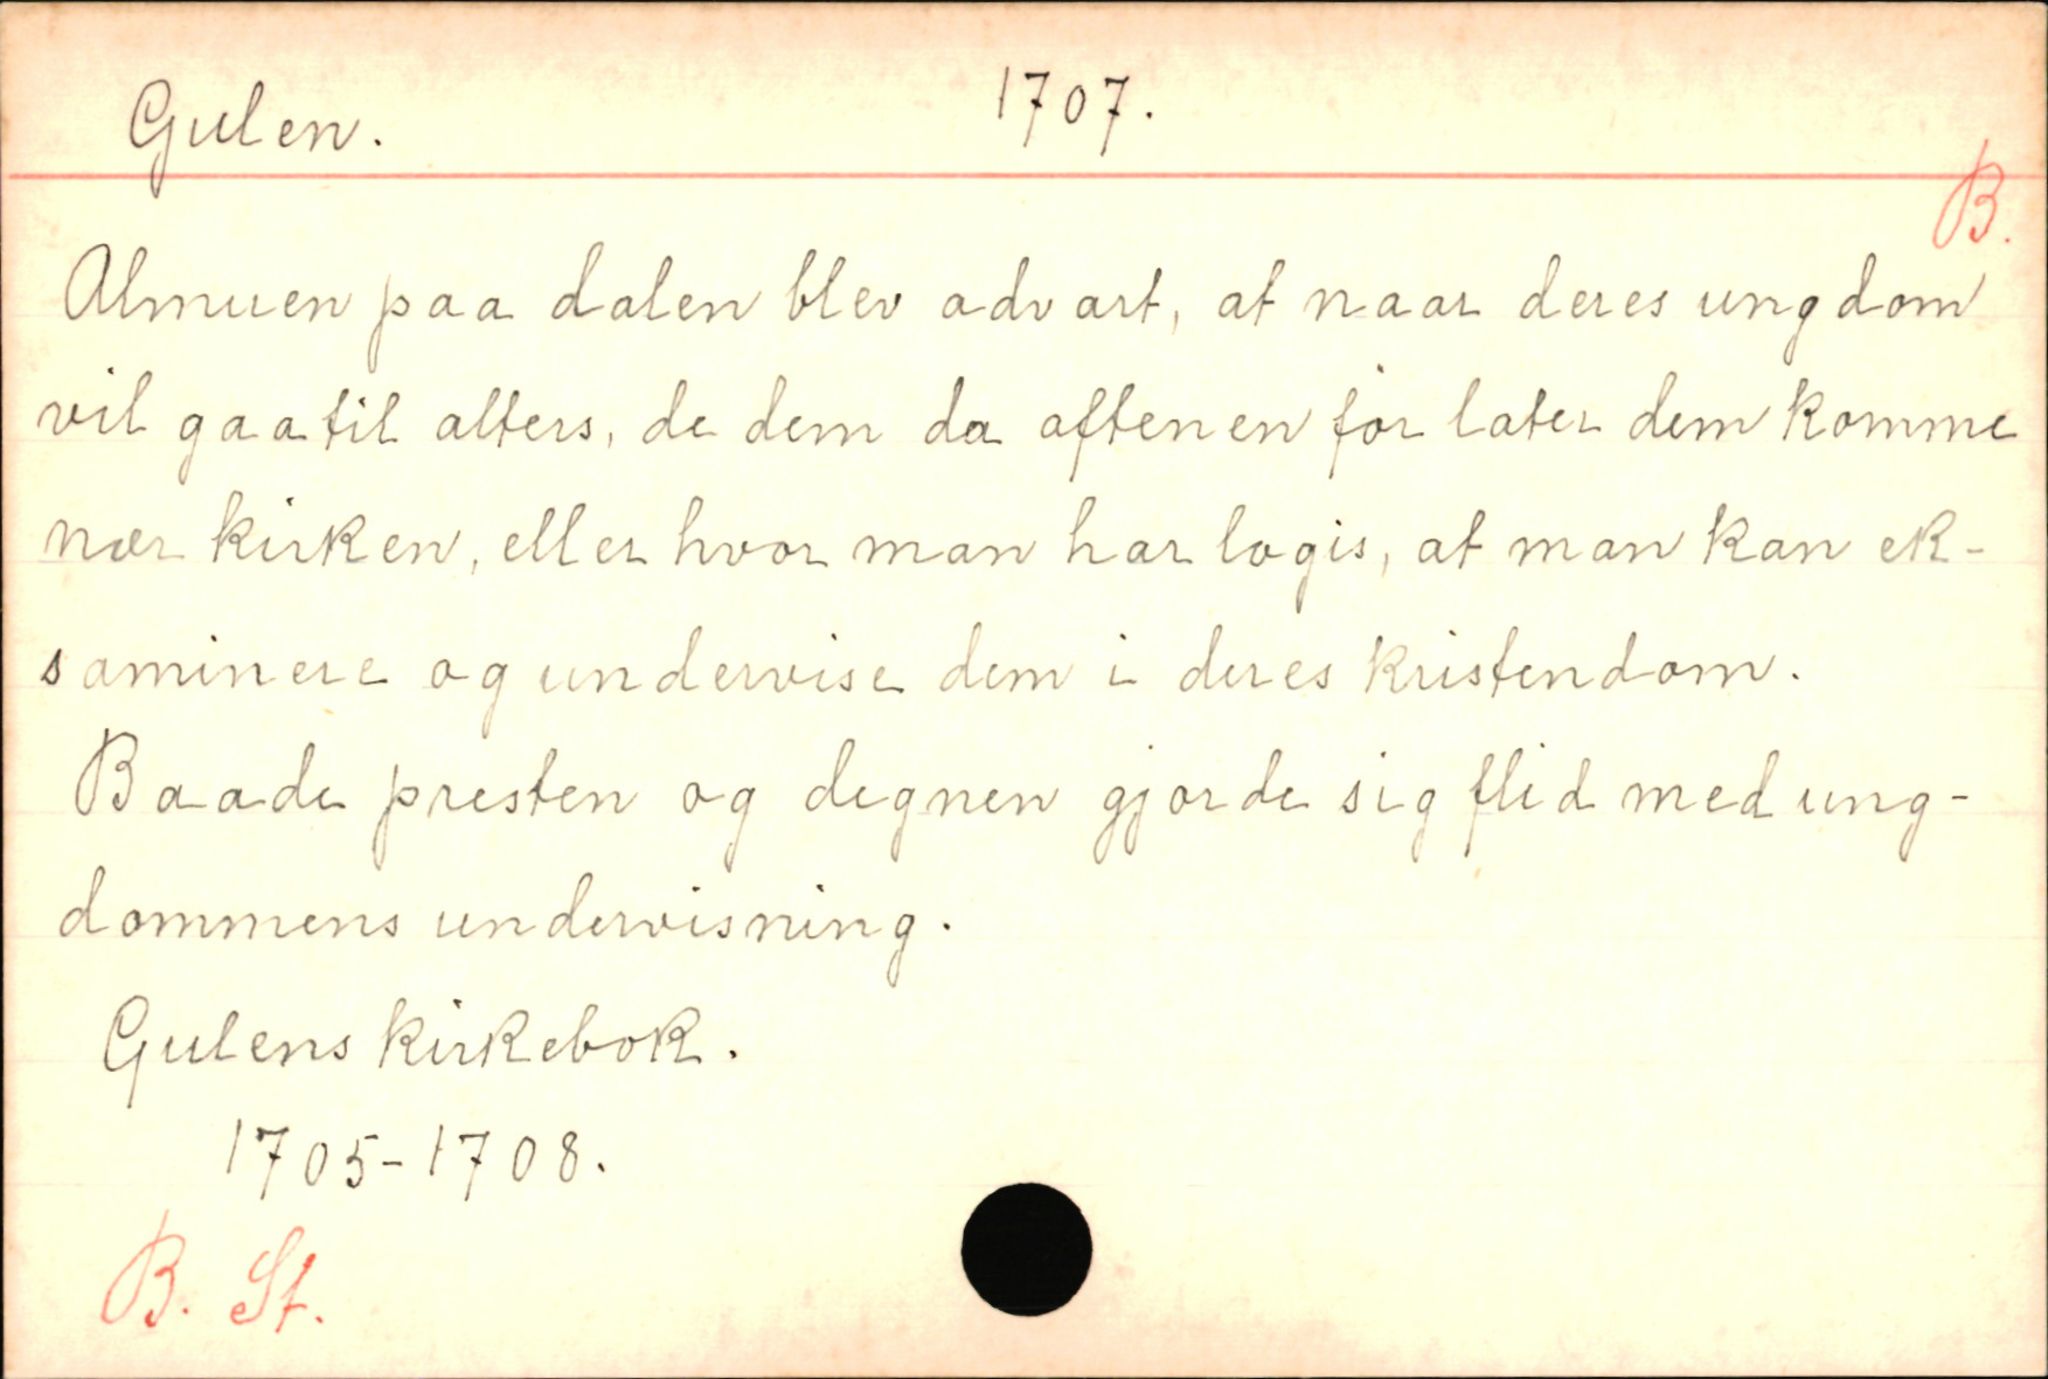 Gulen. 1707.
B.
Almuen paa dalen blev advart, at naar deres ungdom
vil gaa til alters, de dem da aftenen før later dem komme
nær kirken, eller hvor man har logis, at man kan ek-
saminere og undervise dem i deres kristendom.
Baade presten og degnen gjorde sig flid med ung-
dommens undervisning.
Gulens kirkebok.
1705-1708.
B. St.